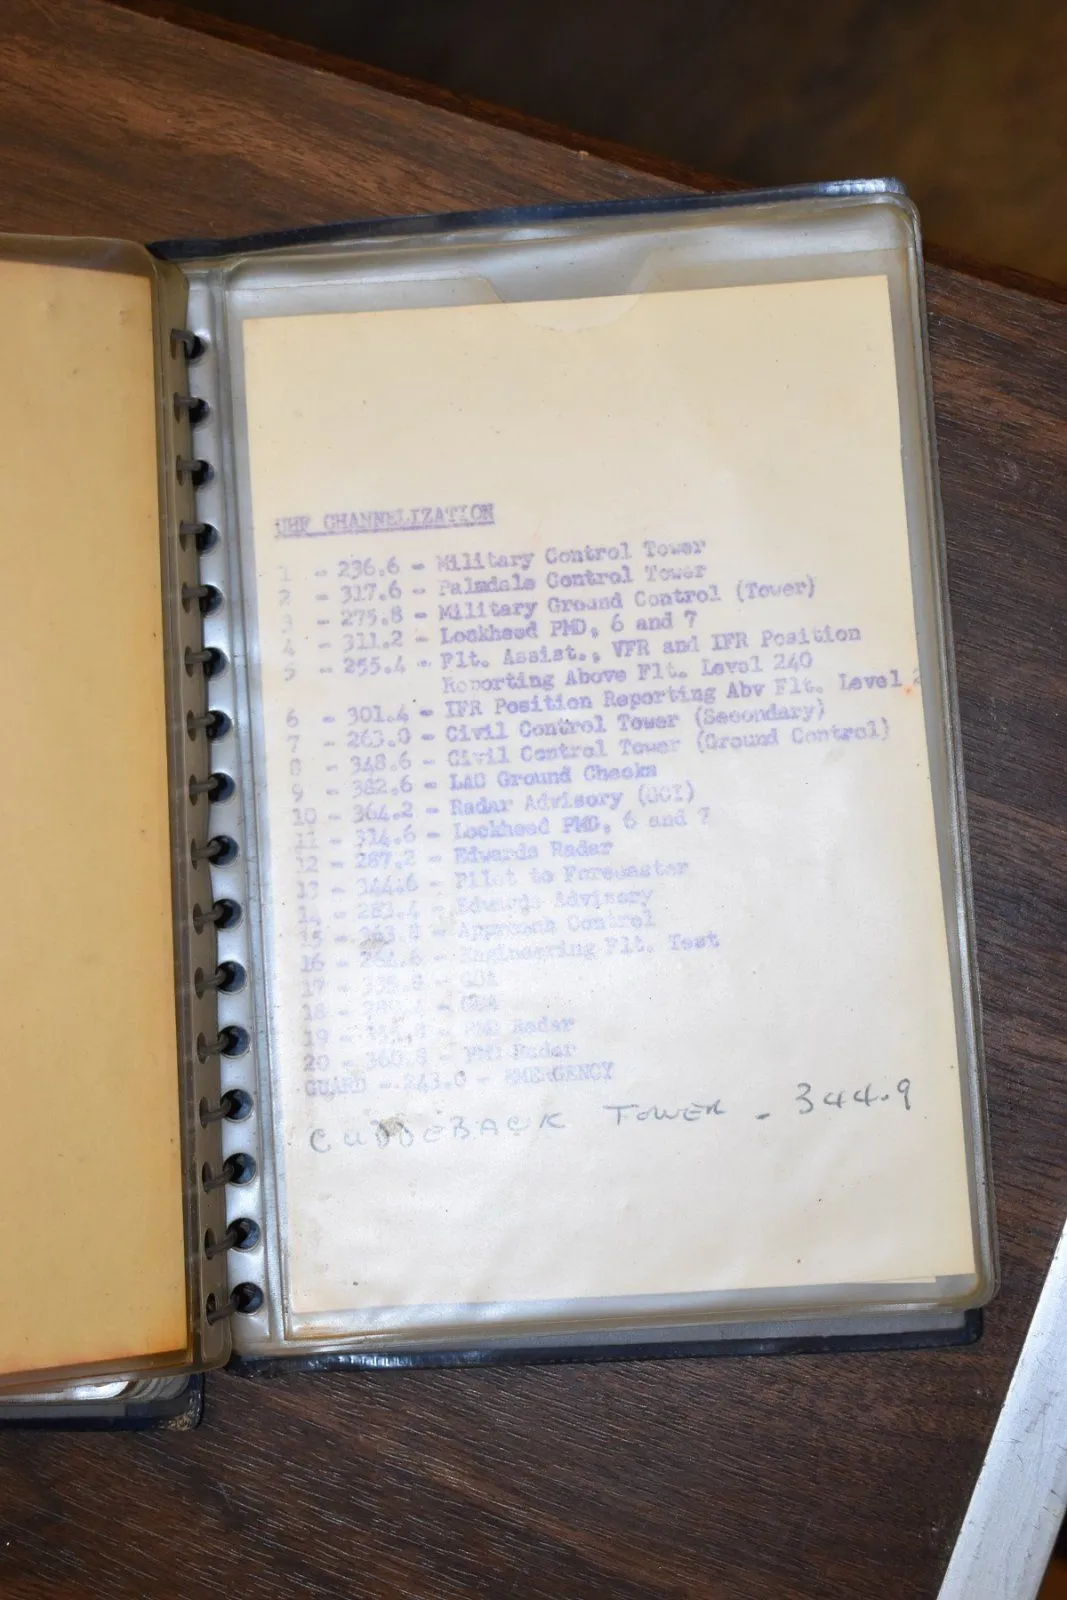 UHF CHANNELIZATION
1 - 236.6 - Military Control Tower
2 - 317.6 - Palmdale Control Tower
3 - 275.8 - Military Ground Control (Tower)
4 - 311.2 - Lockheed PMD, 6 and 7
5 - 255.4 - Flt. Assist., VFR and IFR Position
Reporting Above Flt. Level 240
6 - 301.4 - IFR Position Reporting Abv Flt. Level
7 - 263.0 - Civil Control Tower (Secondary)
8 - 348.6 - Civil Control Tower (Ground Control)
9 - 382.6 - LAC Ground Checks
10 - 364.2 - Radar Advisory (GCI)
11 - 314.6 - Lockheed PMD, 6 and 7
12 - 287.2 - Edwards Radar
13 - 344.6 - Pilot to Forecaster
14 - - Edwards Advisory
15 - - Approach Control
16 - - Engineering Flt. Test
17 - - GCA
18 - - GCA
19 - - PMD Radar
20 - 360.8 - PMD Radar
GUARD - 243.0 - EMERGENCY
CUDDEBACK TOWER - 344.9